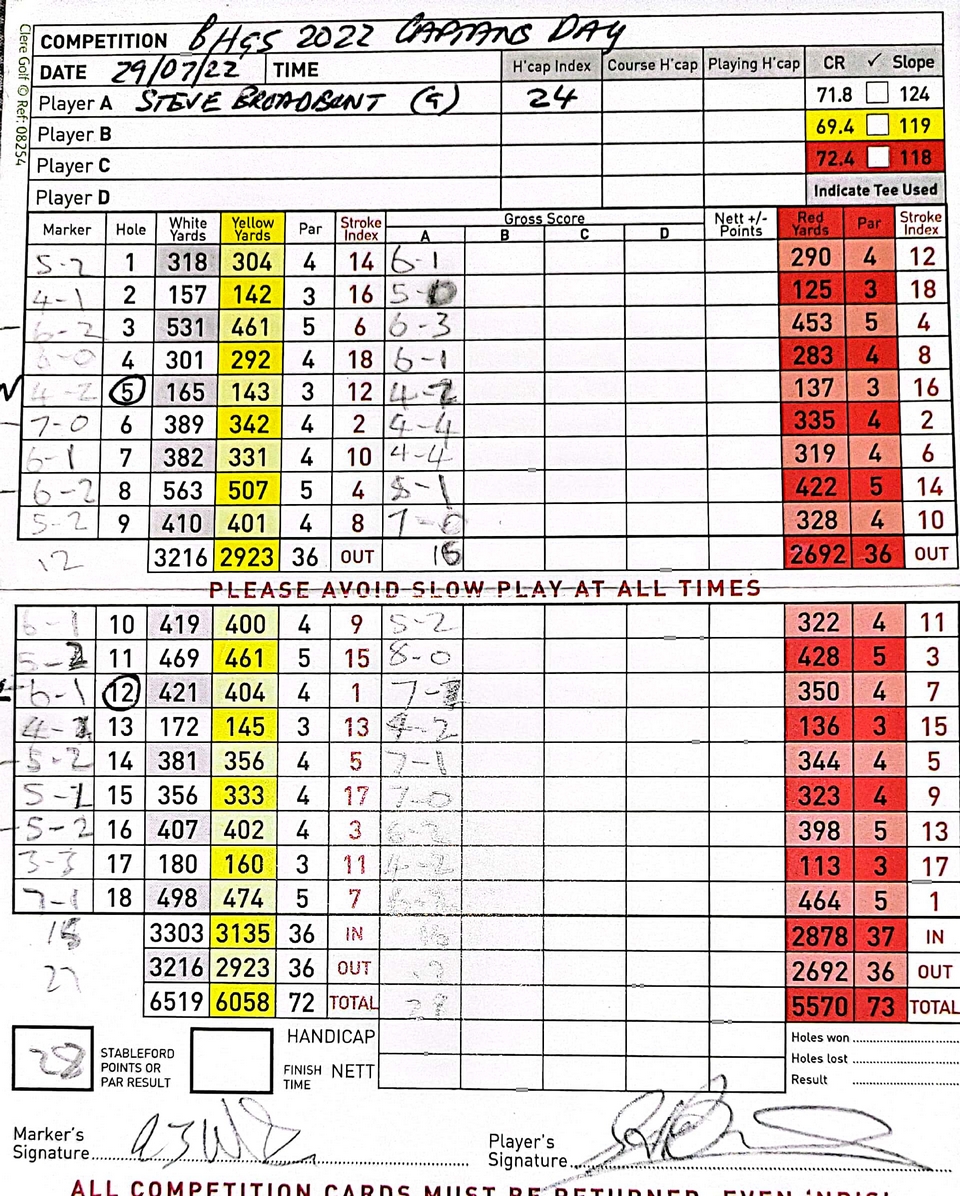 Clere Golf © Ref: 08254
COMPETITION BHGS 2022 CAPTAINS DAY
DATE 29/07/22 TIME H'cap Index Course H'cap Playing H'cap CR ✓ Slope
Player A STEVE BROADBENT (G) 24 71.8 124
Player B 69.4 119
Player C 72.4 118
Player D Indicate Tee Used
Marker Hole White Yards Yellow Yards Par Stroke Index Gross Score A B C D Nett +/- Points Red Yards Par Stroke Index
5-2 1 318 304 4 14 6-1 290 4 12
4-1 2 157 142 3 16 5-0 125 3 18
6-2 3 531 461 5 6 6-3 453 5 4
4 301 292 4 18 6-1 283 4 8
4-2 5 165 143 3 12 4-2 137 3 16
7-0 6 389 342 4 2 4-4 335 4 2
6-1 7 382 331 4 10 4-4 319 4 6
6-2 8 563 507 5 4 8-1 422 5 14
5-2 9 410 401 4 8 7-0 328 4 10
12 3216 2923 36 OUT 2692 36 OUT
PLEASE AVOID SLOW PLAY AT ALL TIMES
6-1 10 419 400 4 9 5-2 322 4 11
11 469 461 5 15 8-0 428 5 3
6-1 12 421 404 4 1 350 4 7
13 172 145 3 13 4-2 136 3 15
5-2 14 381 356 4 5 7-1 344 4 5
15 356 333 4 17 7-0 323 4 9
5-2 16 407 402 4 3 6-2 398 5 13
3-3 17 180 160 3 11 4-2 113 3 17
7-1 18 498 474 5 7 464 5 1
3303 3135 36 IN 2878 37 IN
27 3216 2923 36 OUT 2692 36 OUT
6519 6058 72 TOTAL 5570 73 TOTAL
28 STABLEFORD POINTS OR PAR RESULT HANDICAP
FINISH TIME NETT
Holes won
Holes lost
Result
Marker's Signature
Player's Signature
ALL COMPETITION CARDS MUST BE RETURNED, EVEN